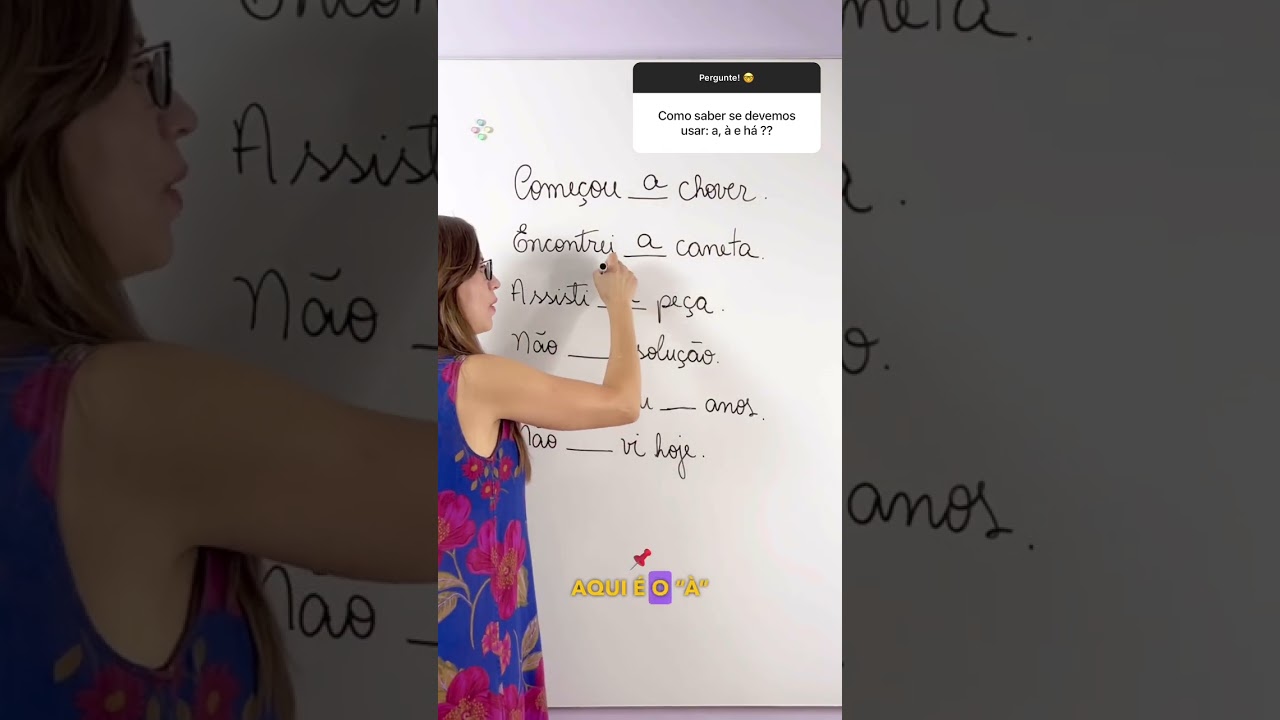 Pergunte! 🤓
Como saber se devemos
usar: a, à e há ??
Começou a chover.
Encontrei a caneta.
Assisti __ peça.
Não ___ solução.
___ anos.
Não ___ vi hoje.
AQUI É O "À"